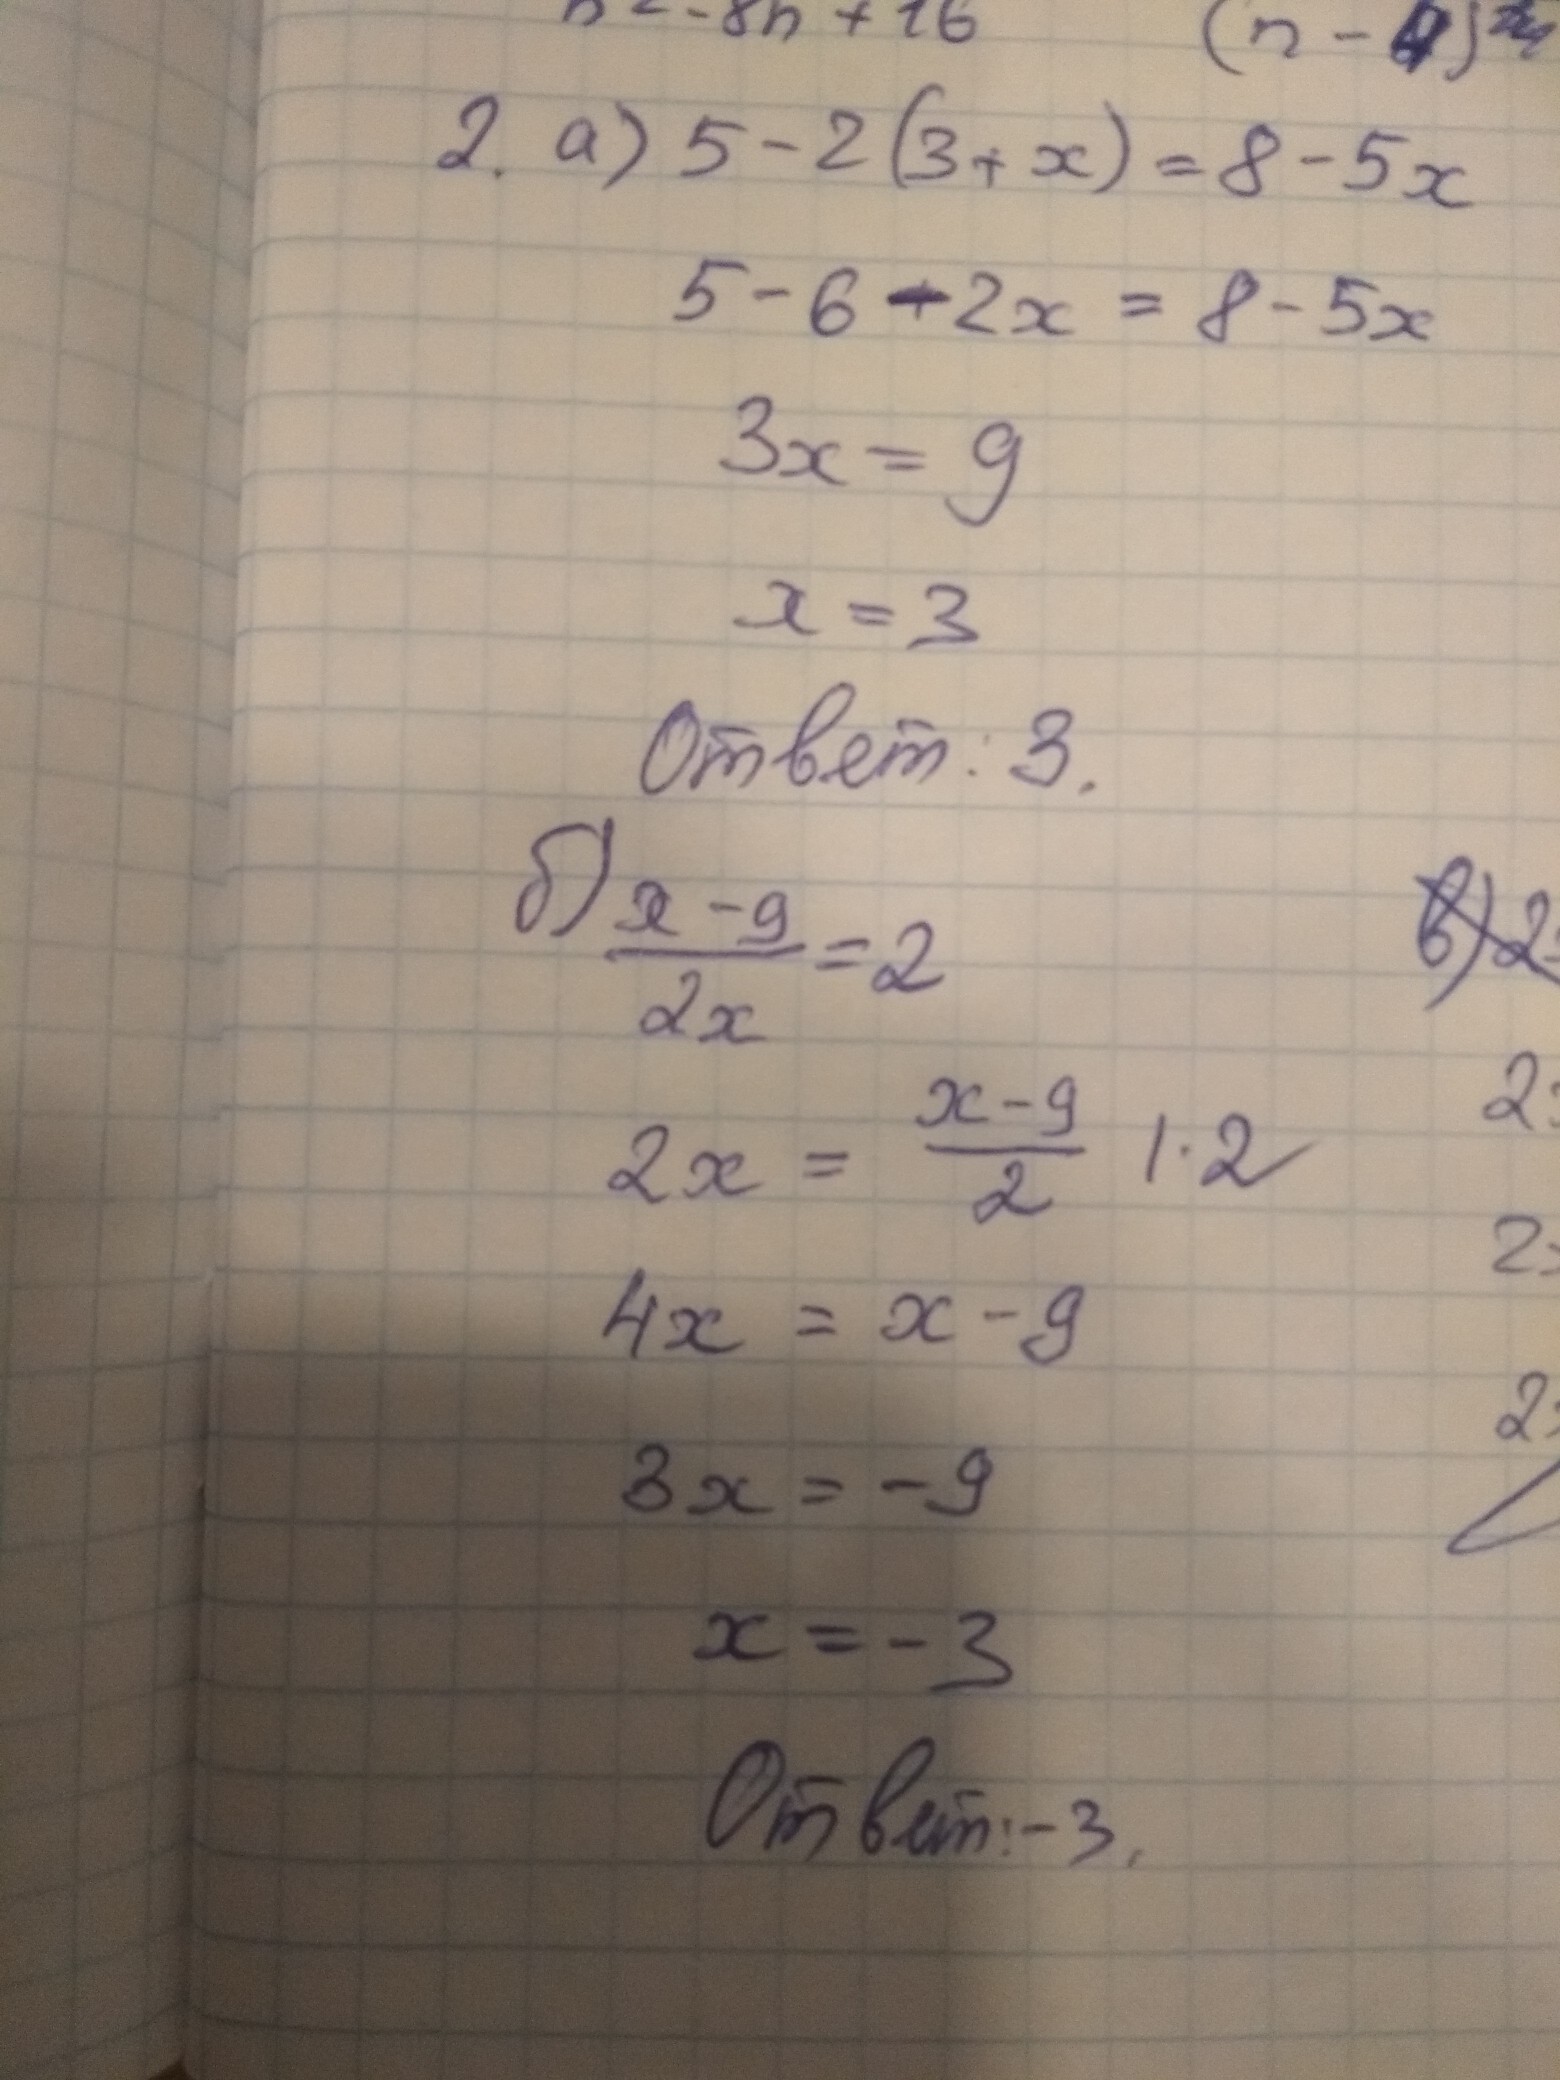 n² - 8n + 16 (n - 4)
2. а) 5 - 2(3 + x) = 8 - 5x
5 - 6 - 2x = 8 - 5x
3x = 9
x = 3
Ответ: 3.
б) (x - 9)/(2x) = 2
2x = (x - 9)/2 | · 2
4x = x - 9
3x = -9
x = -3
Ответ: -3.
в) 2
2
2
2